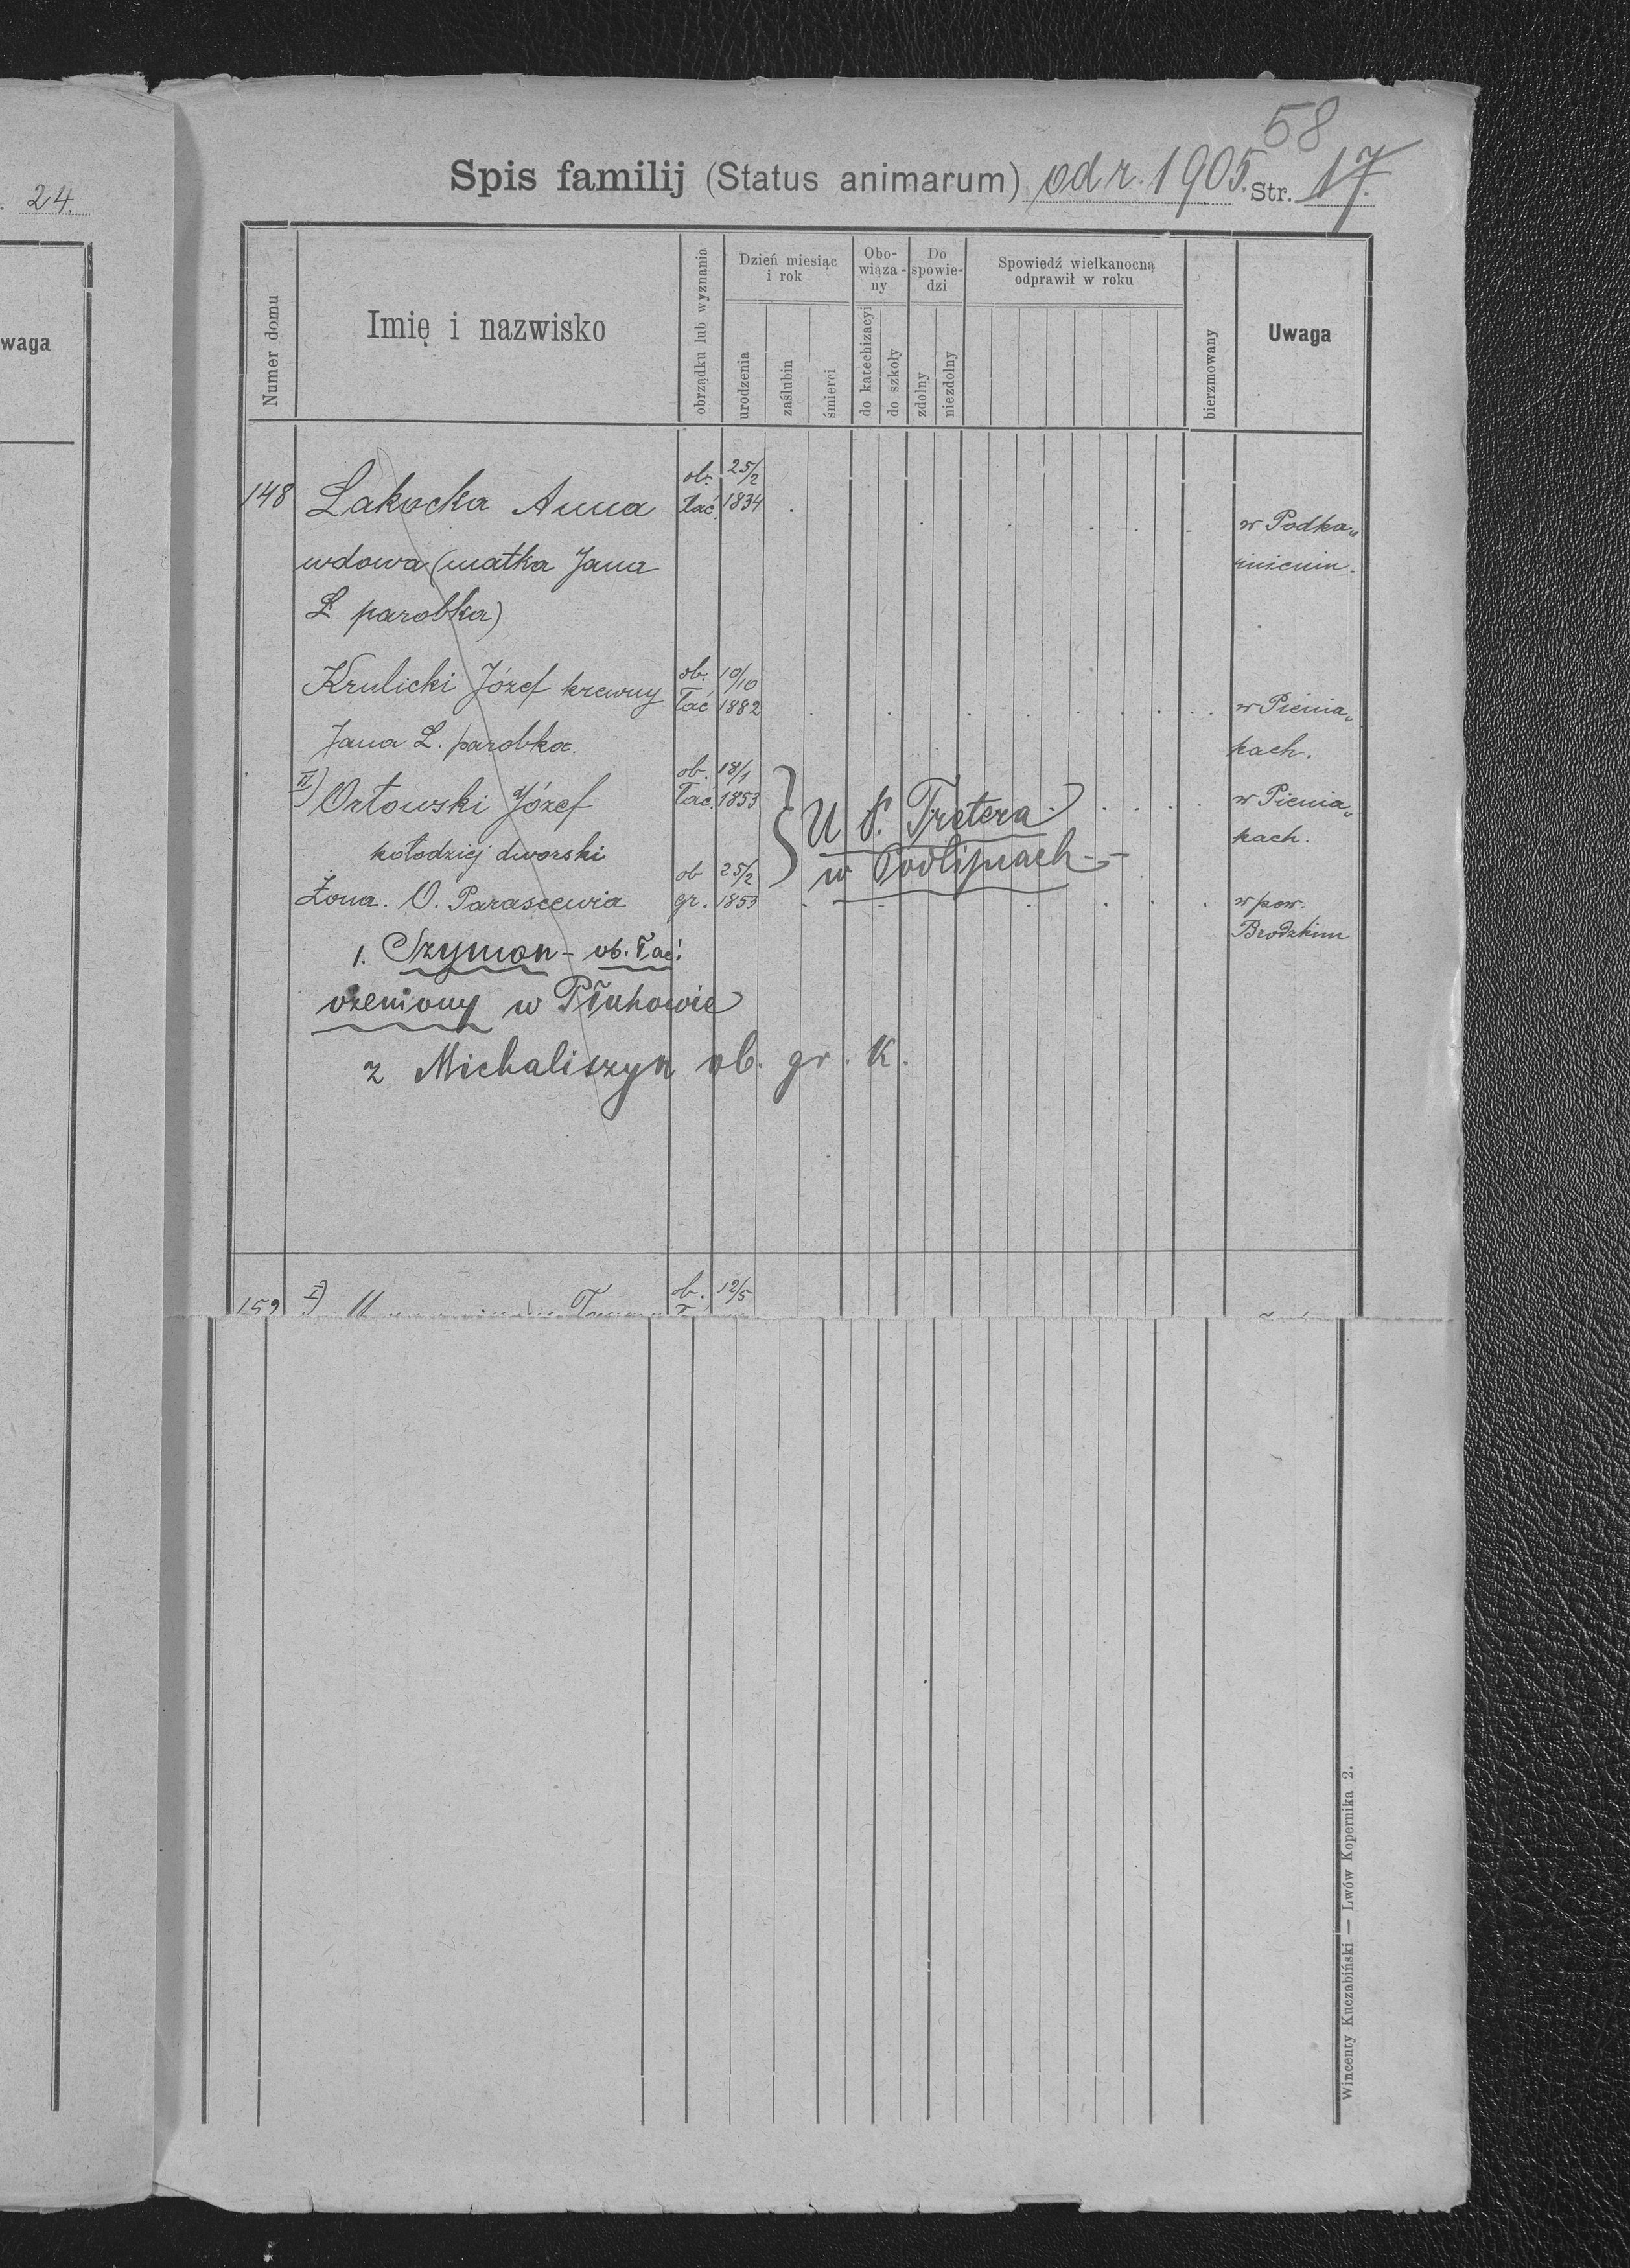 24.
waga
58
Spis familij (Status animarum) od r. 1905. Str. 17.
Numer domu
Imię i nazwisko
obrządku lub wyznania
Dzień miesiąc i rok
urodzenia
zaślubin
śmierci
Obo-
wiąza-
ny
do katechizacyi
do szkoły
Do
spowie-
dzi
zdolny
niezdolny
Spowiedź wielkanocną
odprawił w roku
bierzmowany
Uwaga
148 Lakocka Anna ob. łać. 25/2 1834 w Podka„
wdowa (matka Jana
L. parobka)
Krulicki Józef krewny ob. łać 10/10 1882 w Pienia„
Jana L. parobka. kach.
II) Orłowski Józef ob. łać. 18/1 1853 w Pienia„
kołodziej dworski kach.
U P. Tretera
w Podlipcach
Żona. O. Parascewia ob gr. 25/2 1853 w pow.
Brodzkim
1. Szymon - ob. łać.
ożeniony w Płuhowie
z Michaliszyn ob. gr. K.
I) ob. 12/5
Wincenty Kuczabiński — Lwów Kopernika 2.